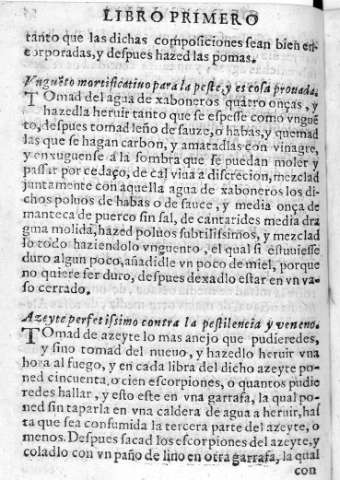 LIBRO PRIMERO
tanto que las dichas composiciones sean bien en-
corporadas, y despues hazed las pomas.
Vnguẽto mortificatiuo para la peste, y es cosa prouada.
TOmad del agua de xaboneros quatro onças, y
hazedla heruir tanto que se espesse como vnguẽ
to, despues tomad leño de sauze, o habas, y quemad
las que se hagan carbon, y amatadlas con vinagre,
y enxuguense a la sombra que se puedan moler y
passar por cedaço, de cal viua a discrecion, mezclad
juntamente con aquella agua de xaboneros los di-
chos poluos de habas o de sauce, y media onça de
manteca de puerco sin sal, de cantarides media dra
gma molida, hazed poluos subtilissimos, y mezclad
lo todo haziendolo vnguento, el qual si estuuiesse
duro algun poco, añadidle vn poco de miel, porque
no quiere ser duro, despues dexadlo estar en vn va-
so cerrado.
Azeyte perfetissimo contra la pestilencia y veneno.
TOmad de azeyte lo mas anejo que pudieredes,
y sino tomad del nueuo, y hazedlo heruir vna
hora al fuego, y en cada libra del dicho azeyte po-
ned cincuenta, o cien escorpiones, o quantos pudie
redes hallar, y esto este en vna garrafa, la qual po-
ned sin taparla en vna caldera de agua a heruir, has
ta que sea consumida la tercera parte del azeyte, o
menos. Despues sacad los escorpiones del azeyte, y
coladlo con vn paño de lino en otra garrafa, la qual
con